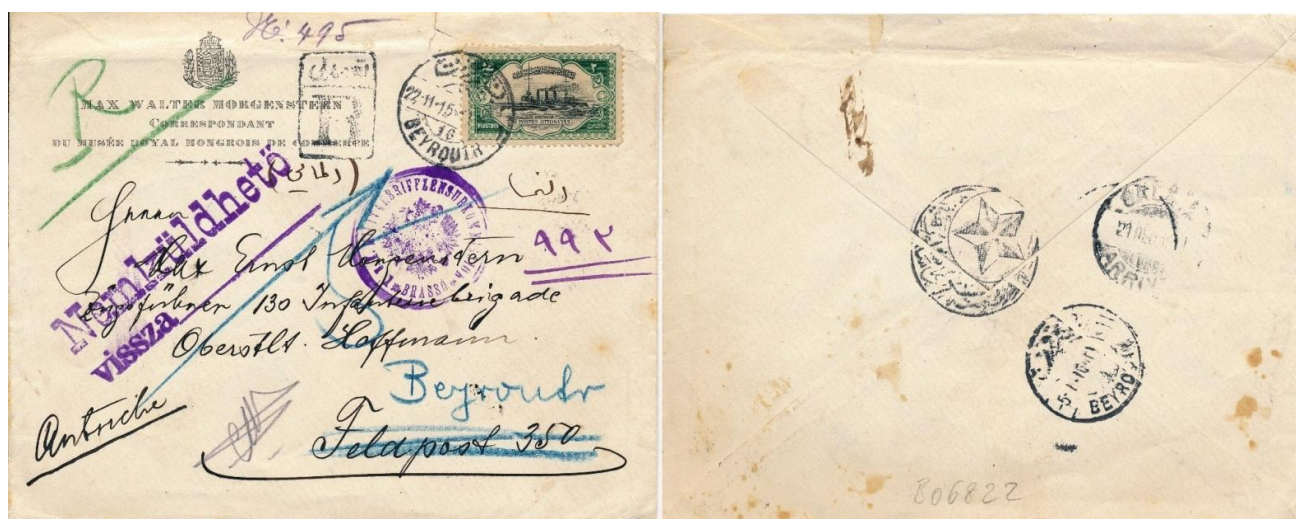 No. 495
R
MAX WALTER MORGENSTERN
CORRESPONDANT
DU MUSÉE ROYAL HONGROIS DE COMMERCE
R
22-11-15
BEYROUTH
POSTES OTTOMANES
Nem küldhető
vissza
٩٩٢
Herrn
Max Ernst Morgenstern
Zugsführer 130 Infanteriebrigade
Oberstlt. Hoffmann
Beyrouth
Feldpost 350
Autriche
ARRIV
BEYRO
B06822